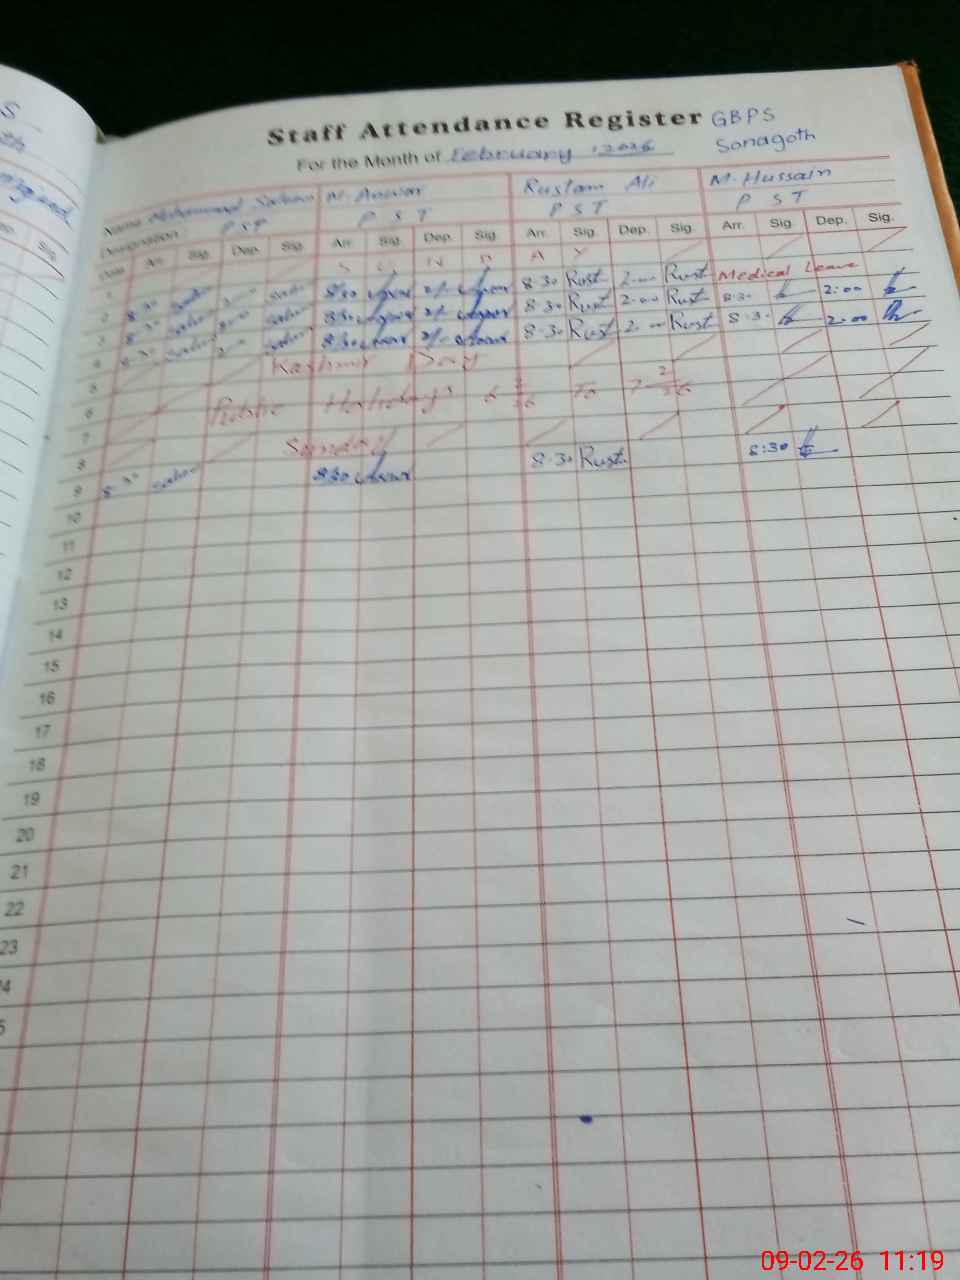 Staff Attendance Register GBPS
For the Month of February 2026 Sonagoth
Name Muhammad Saleem M. Anwar Rustam Ali M. Hussain
Designation PST PST PST PST
Date Arr. Sig. Dep. Sig. Arr. Sig. Dep. Sig. Arr. Sig. Dep. Sig. Arr. Sig. Dep. Sig.
1 S U N D A Y
2 8:30 2:00 8/30 Anwar 2/- Anwar 8:30 Rust 2:00 Rust Medical Leave
3 8:30 8/30 Anwar 2/- Anwar 8:30 Rust 2:00 Rust 8:30 2:00
4 8:30 2:00 8/30 Anwar 2/- Anwar 8:30 Rust 2:00 Rust 8:30 2:00
5 Kashmir Day
6 Public Holidays 6 To 7
7
8 Sunday
9 8:30 8/30 Anwar 8:30 Rust 8:30
10
11
12
13
14
15
16
17
18
19
20
21
22
23
4
5
09-02-26 11:19